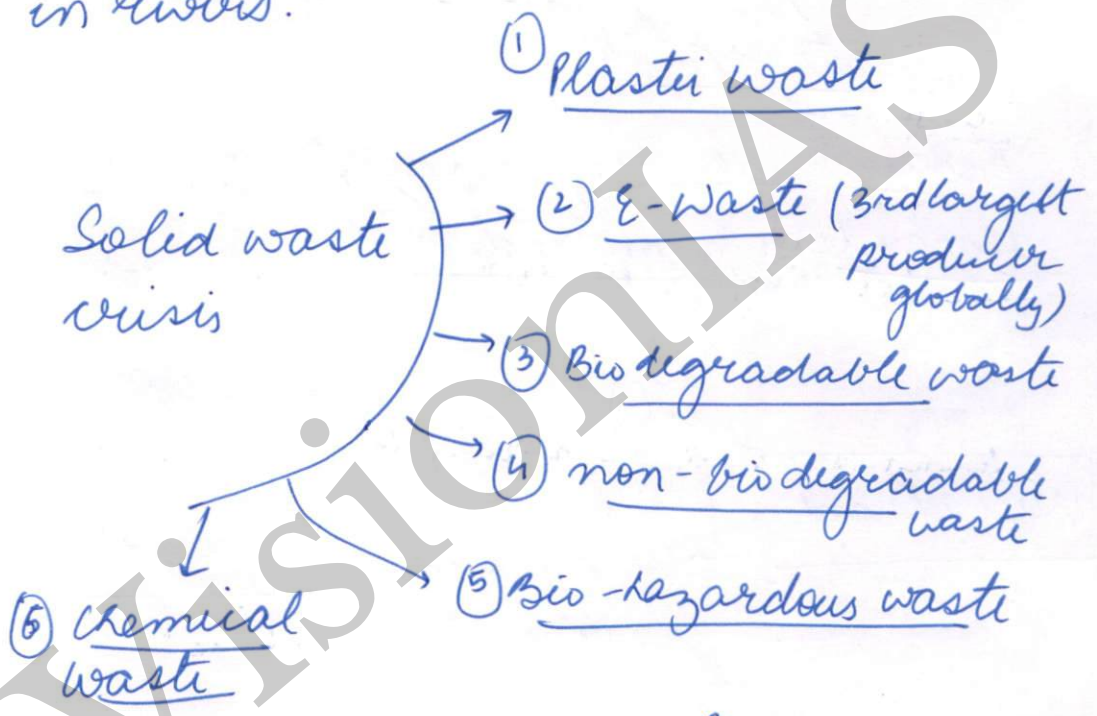 in rivers.
① Plastic waste
Solid waste
crisis
② E-waste (3rd largest
producer
globally)
③ Biodegradable waste
④ non-biodegradable
waste
⑤ Bio-hazardous waste
⑥ chemical
waste
VisionIAS